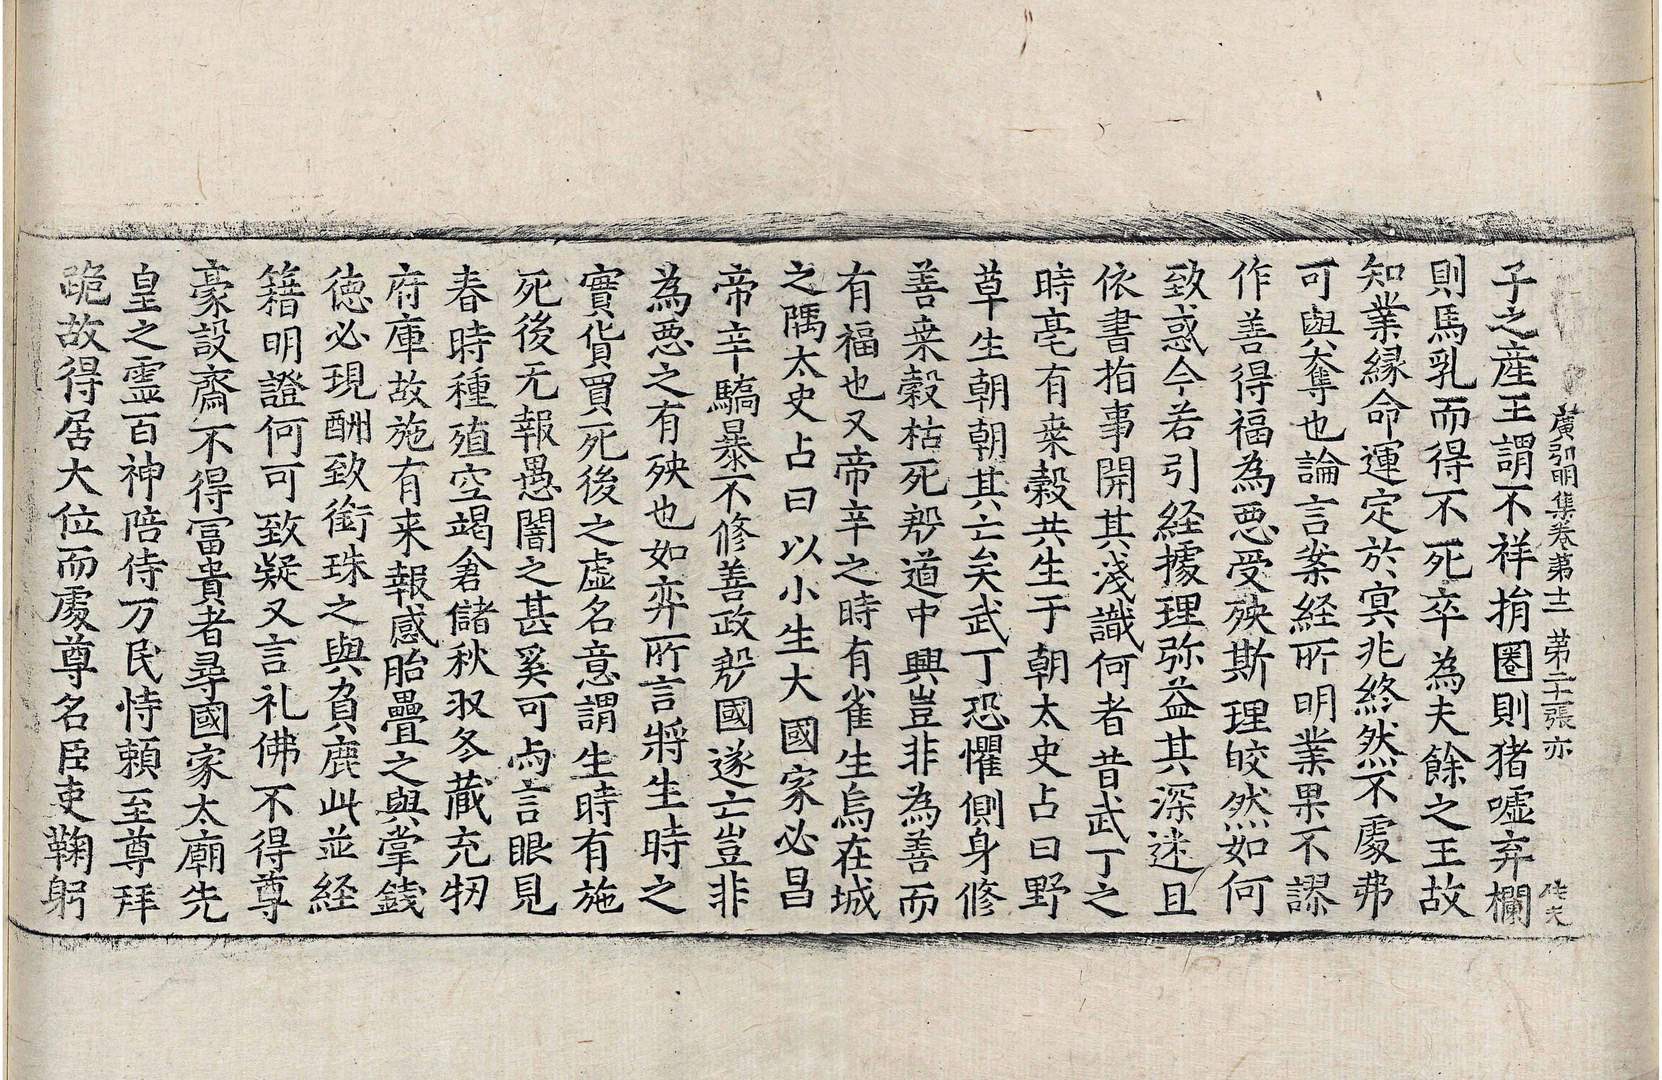 廣弘明集卷第十二　第二十張　亦
子之産王謂不祥捐圈則猪噓弃欄
則馬乳而得不死卒為夫餘之王故
知業縁命運定於冥兆終然不處弗
可與奪也論言案経所明業果不謬
作善得福為悪受殃斯理皎然如何
致惑今若引経據理弥益其深迷且
依書指事開其淺識何者昔武丁之
時亳有桒穀共生于朝太史占曰野
草生朝朝其亡矣武丁恐懼側身修
善桒穀枯死殷道中興豈非為善而
有福也又帝辛之時有雀生烏在城
之隅太史占曰以小生大國家必昌
帝辛驕暴不修善政殷國遂亡豈非
為悪之有殃也如弈所言將生時之
寳貨買死後之虚名意謂生時有施
死後无報愚闇之甚奚可与言眼見
春時種殖空竭倉儲秋収冬藏充牣
府庫故施有来報感胎疊之與掌錢
徳必現酬致銜珠之與負鹿此並経
籍明證何可致疑又言礼佛不得尊
豪設齋不得冨貴者尋國家太廟先
皇之霊百神陪侍万民恃頼至尊拜
跪故得居大位而處尊名臣吏鞠躬